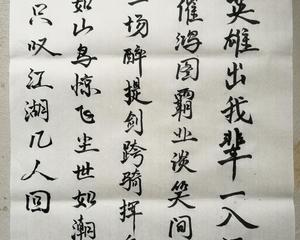 英雄出我辈一入
催鸿图霸业谈笑间
一场醉提剑跨骑挥
如山鸟惊飞尘世如潮
只叹江湖几人回